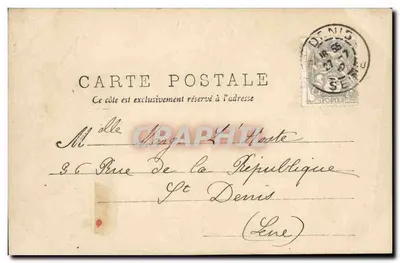 DENIS
SEINE
CARTE POSTALE
Ce côté est exclusivement réservé à l'adresse
Mlle
36 Rue de la République
St Denis
(Seine)